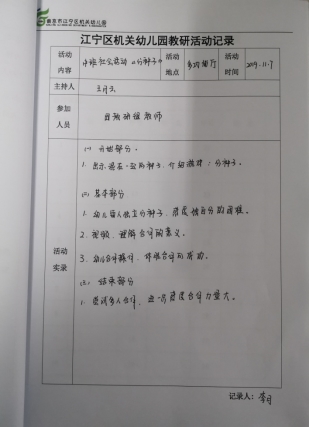 南京市江宁区机关幼儿园
江宁区机关幼儿园教研活动记录
活动内容 中班社会活动《分种子》 活动地点 多功能厅 活动时间 2019.11.7
主持人
参加人员 教师
活动实录
(一) 开始部分
1. 出示混在一起的种子，介绍游戏：分种子。
(二) 基本部分
1. 幼儿独立分种子，感受独自分的困难。
2. 视频，理解合作的意义。
3. 幼儿合作操作，体验合作的成功。
(三) 结束部分
1. 尝试多人合作，进一步感受合作力量大。
记录人：